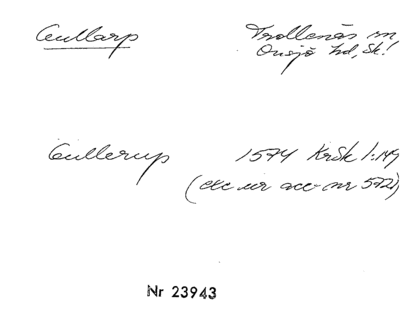 Gullarp Trollenäs sn,
Onsjö hd, Sk!
Gullerup 1574 KrSk 1:149
(exc ur acc-nr 572)
Nr 23943